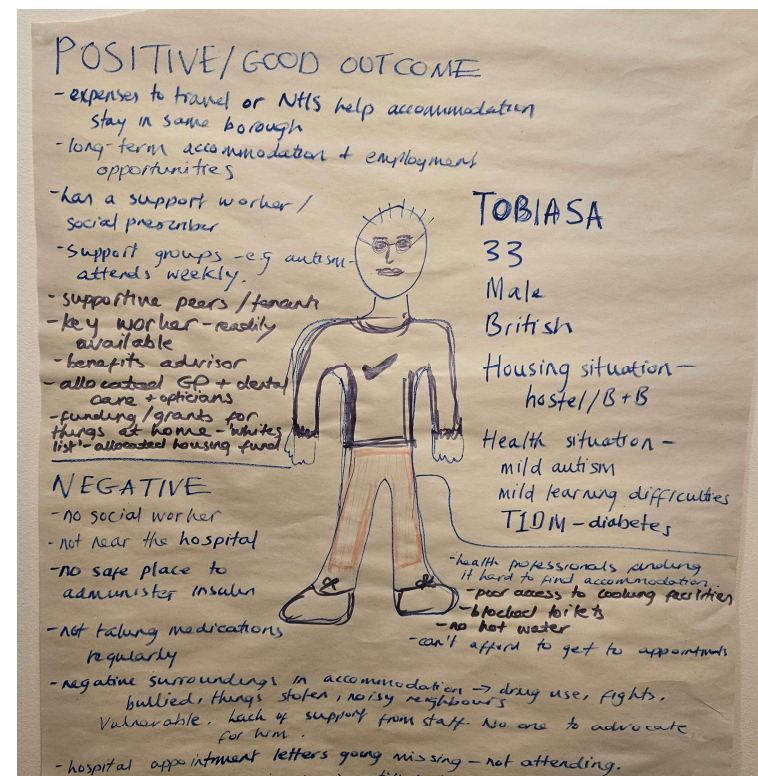 POSITIVE/GOOD OUTCOME
- expenses to travel or NHS help accommodation
stay in same borough
- long-term accommodation + employment
opportunities
- has a support worker/
social prescriber
- Support groups - e.g autism -
attends weekly.
- supportive peers/tenants
- key worker - readily
available
- benefits advisor
- allocated GP + dental
care + opticians
- funding/grants for
things at home - 'whites
list' - allocated housing fund
TOBIASA
33
Male
British
Housing situation -
hostel/B+B
Health situation -
mild autism
mild learning difficulties
T1DM - diabetes
NEGATIVE
- no social worker
- not near the hospital
- no safe place to
administer insulin
- not taking medications
regularly
- health pofessionals finding
it hard to find accommodation.
- poor access to cooking facilities
- blocked toilets
- no hot water
- can't afford to get to appointments
- negative surroundings in accommodation → drug use, fights,
bullied, things stolen, noisy neighbours
Vulnerable. Lack of support from staff. No one to advocate
for him.
- hospital appointment letters going missing - not attending.